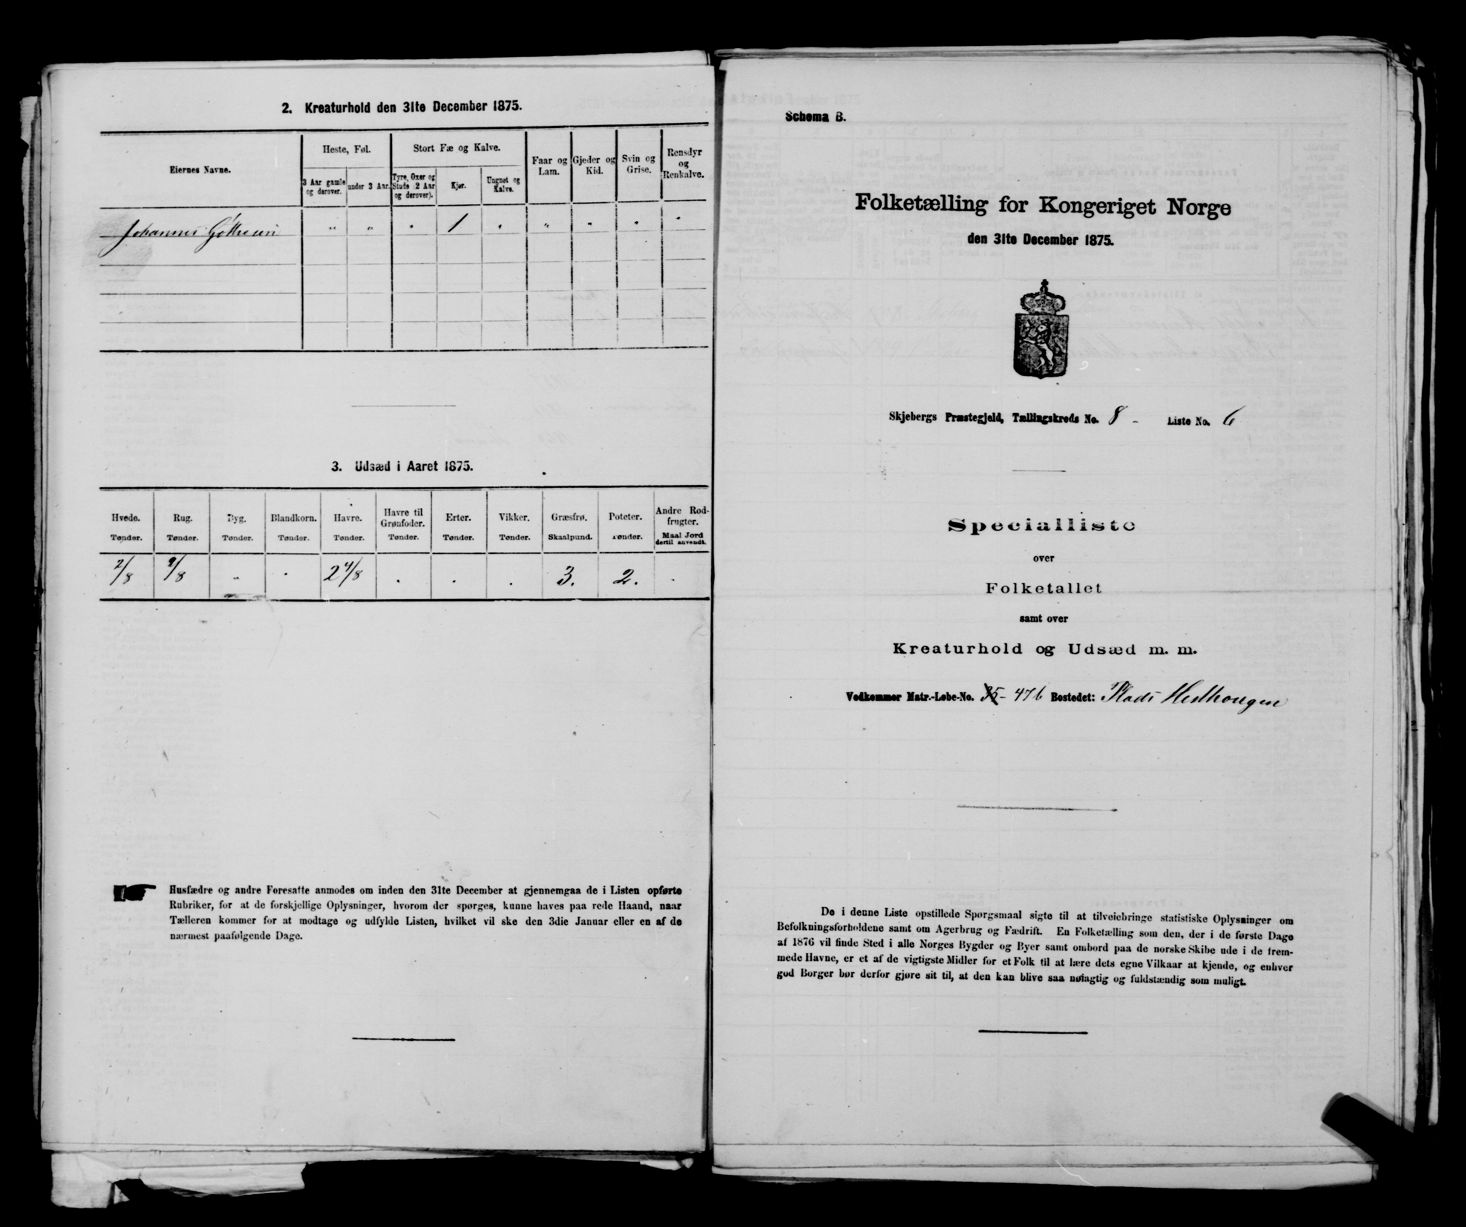 2. Kreaturhold den 31te December 1875.
Eiernes Navne.
Heste, Føl.
3 Aar gamle og derover.
under 3 Aar.
Stort Fæ og Kalve.
Tyre, Oxer og Stude 2 Aar og derover).
Kjør.
Ungnet og Kalve.
Faar og Lam.
Gjeder og Kid.
Svin og Grise.
Rensdyr og Renkalve.
Johannes " " " 1 " " " " "
3. Udsæd i Aaret 1875.
Hvede. Rug. Byg. Blandkorn. Havre. Havre til Grønfoder. Erter. Vikker. Græsfrø. Poteter. Andre Rodfrugter.
Tønder. Tønder. Tønder. Tønder. Tønder. Tønder. Tønder. Tønder. Skaalpund. Tønder. Maal Jord dertil anvendt.
2/8 9/8 " " 2 4/8 . . . 3. 2. .
Husfædre og andre Foresatte anmodes om inden den 31te December at gjennemgaa de i Listen opførte
Rubriker, for at de forskjellige Oplysninger, hvorom der spørges, kunne haves paa rede Haand, naar
Tælleren kommer for at modtage og udfylde Listen, hvilket vil ske den 3die Januar eller en af de
nærmest paafølgende Dage.
Schema B.
Folketælling for Kongeriget Norge
den 31te December 1875.
Skjebergs Præstegjeld, Tællingskreds No. 8 - Liste No. 6
Specialliste
over
Folketallet
samt over
Kreaturhold og Udsæd m. m.
Vedkommer Matr.-Løbe-No. 35 - 47b Bostedet: Plads Hesthougen
De i denne Liste opstillede Spørgsmaal sigte til at tilveiebringe statistiske Oplysninger om
Befolkningsforholdene samt om Agerbrug og Fædrift. En Folketælling som den, der i de første Dage
af 1876 vil finde Sted i alle Norges Bygder og Byer samt ombord paa de norske Skibe ude i de frem-
mede Havne, er et af de vigtigste Midler for et Folk til at lære dets egne Vilkaar at kjende, og enhver
god Borger bør derfor gjøre sit til, at den kan blive saa nøiagtig og fuldstændig som muligt.